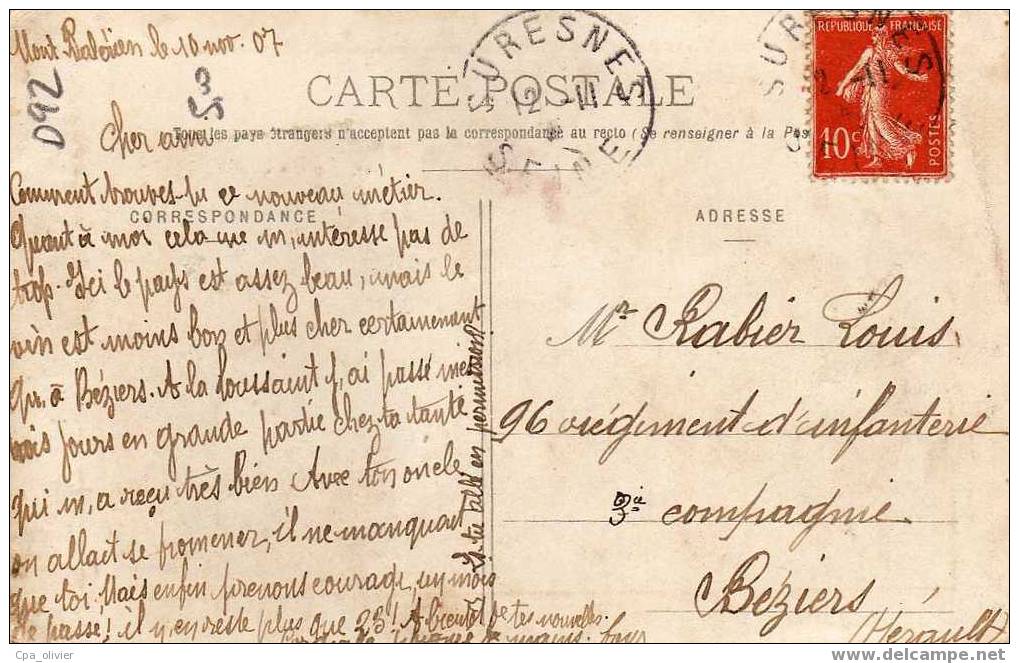 Mont Valérien le 10 nov. 07
D92
53
SURESNES
12 -11
SEINE
RÉPUBLIQUE FRANÇAISE
10c
POSTES
CARTE POSTALE
Tous les pays étrangers n'acceptent pas la correspondance au recto (Se renseigner à la Pos
Cher ami
CORRESPONDANCE
Comment trouves-tu ce nouveau métier.
Quant à moi cela ne m,intéresse pas de
trop. Ici le pays est assez beau, mais le
vin est moins bon et plus cher certainement
qu,à Béziers. A la Toussaint j,ai passé mes
trois jours en grande partie chez ta tante
qui m,a reçu très bien Avec ton oncle
on allait se promener, il ne manquait
que toi. Mais enfin prenons courage, un mois
de passé! il n,en reste plus que 23! A bientôt de tes nouvelles.
tu allé en permission?
ADRESSE
Mr Rabier Louis
96 régiment d'infanterie
3e compagnie
Béziers
Hérault
Cpa_olivier
delcampe.net